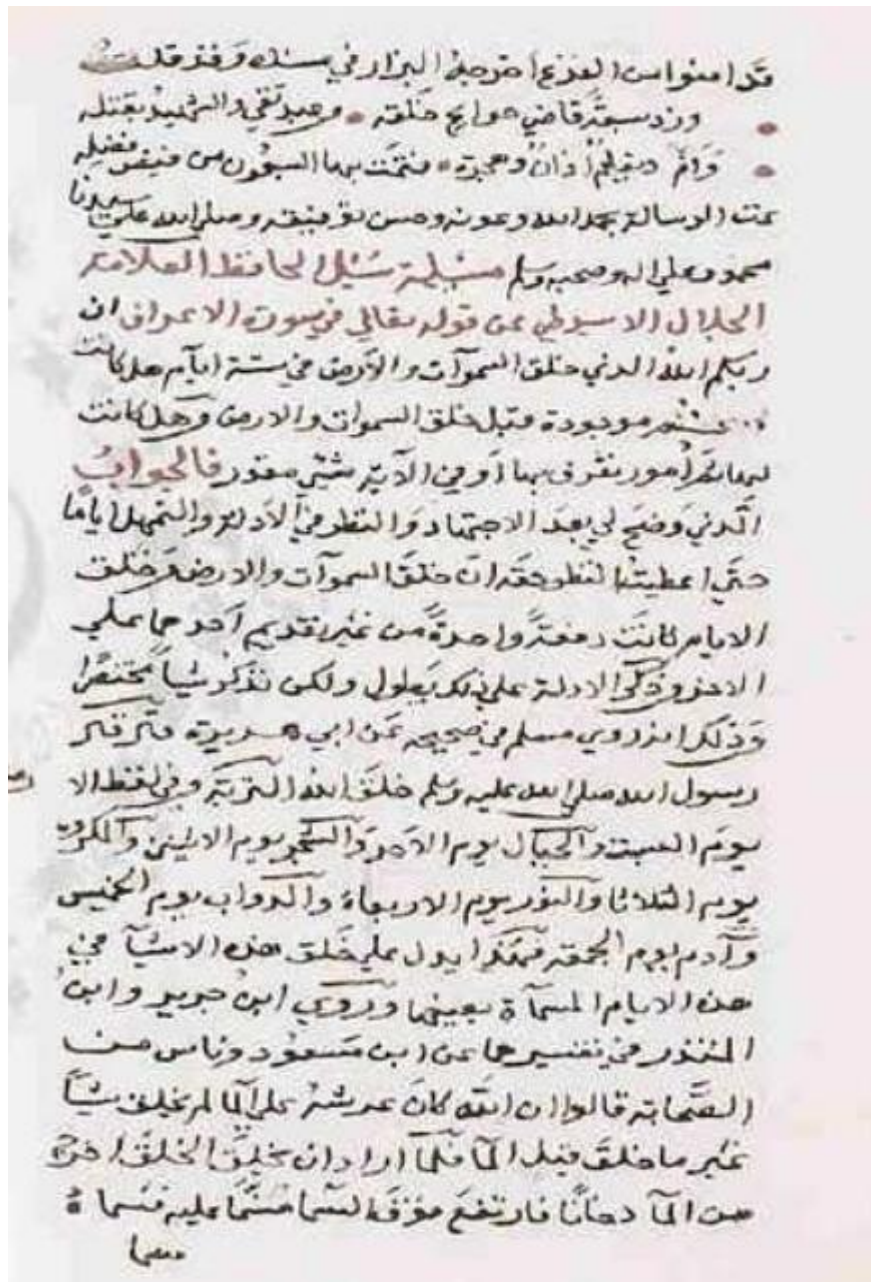 قد امنوا من الفزع اخرجه البزار في سننه وقد قلت
وزد سبعة قاضي حوايج خلقه وعبد تقي والشهيد بقتله
وام وتعليم اذان وهجرة فتمت بها السبعون من فيض فضله
تمت الرسالة بحمد الله وعونه وحسن توفيقه وصلى الله على سيدنا
محمد وعلي اله وصحبه وسلم مسئلة سئل الحافظ العلامة
الجلال الاسيوطي عن قوله تعالي في سورة الاعراف ان
ربكم الله الذي خلق السموات والارض في ستة ايام هل كانت
موجودة قبل خلق السموات والارض وهل كانت
امور تعرف بها او في الآية شيئ مقدر فالجواب
الذي وضح لي بعد الاجتهاد والنظر في الادلة والتمهل اياما
حتي اعطيت النظر حقه ان خلق السموات والارض وخلق
الايام كانت دفعة واحدة من غير تقديم احدهما علي
الاخر وذكر الادلة علي ذلك يطول ولكن نذكر شيا مختصرا
وذلك انه روي مسلم في صحيحه عن ابي هريرة قال قال
رسول الله صلي الله عليه وسلم خلق الله التربة وفي لفظ الا
يوم السبت والجبال يوم الاحد والشجر يوم الاثنين والمكروه
يوم الثلاثا والنور يوم الاربعاء والدواب يوم الخميس
وآدم يوم الجمعة فهكذا يدل علي خلق هذه الاشيآ في
هذه الايام المسمآة بعينها وروي ابن جرير وابن
المنذر في تفسيرهما عن ابن مسعود وناس من
الصحابة قالوا ان الله كان عرشه علي المآ لم يخلق شيأ
غير ما خلق قبل المآ فلمآ اراد ان يخلق الخلق اخرج
من المآ دخانا فارتفع فوق السما فسما عليه فسماه
سما